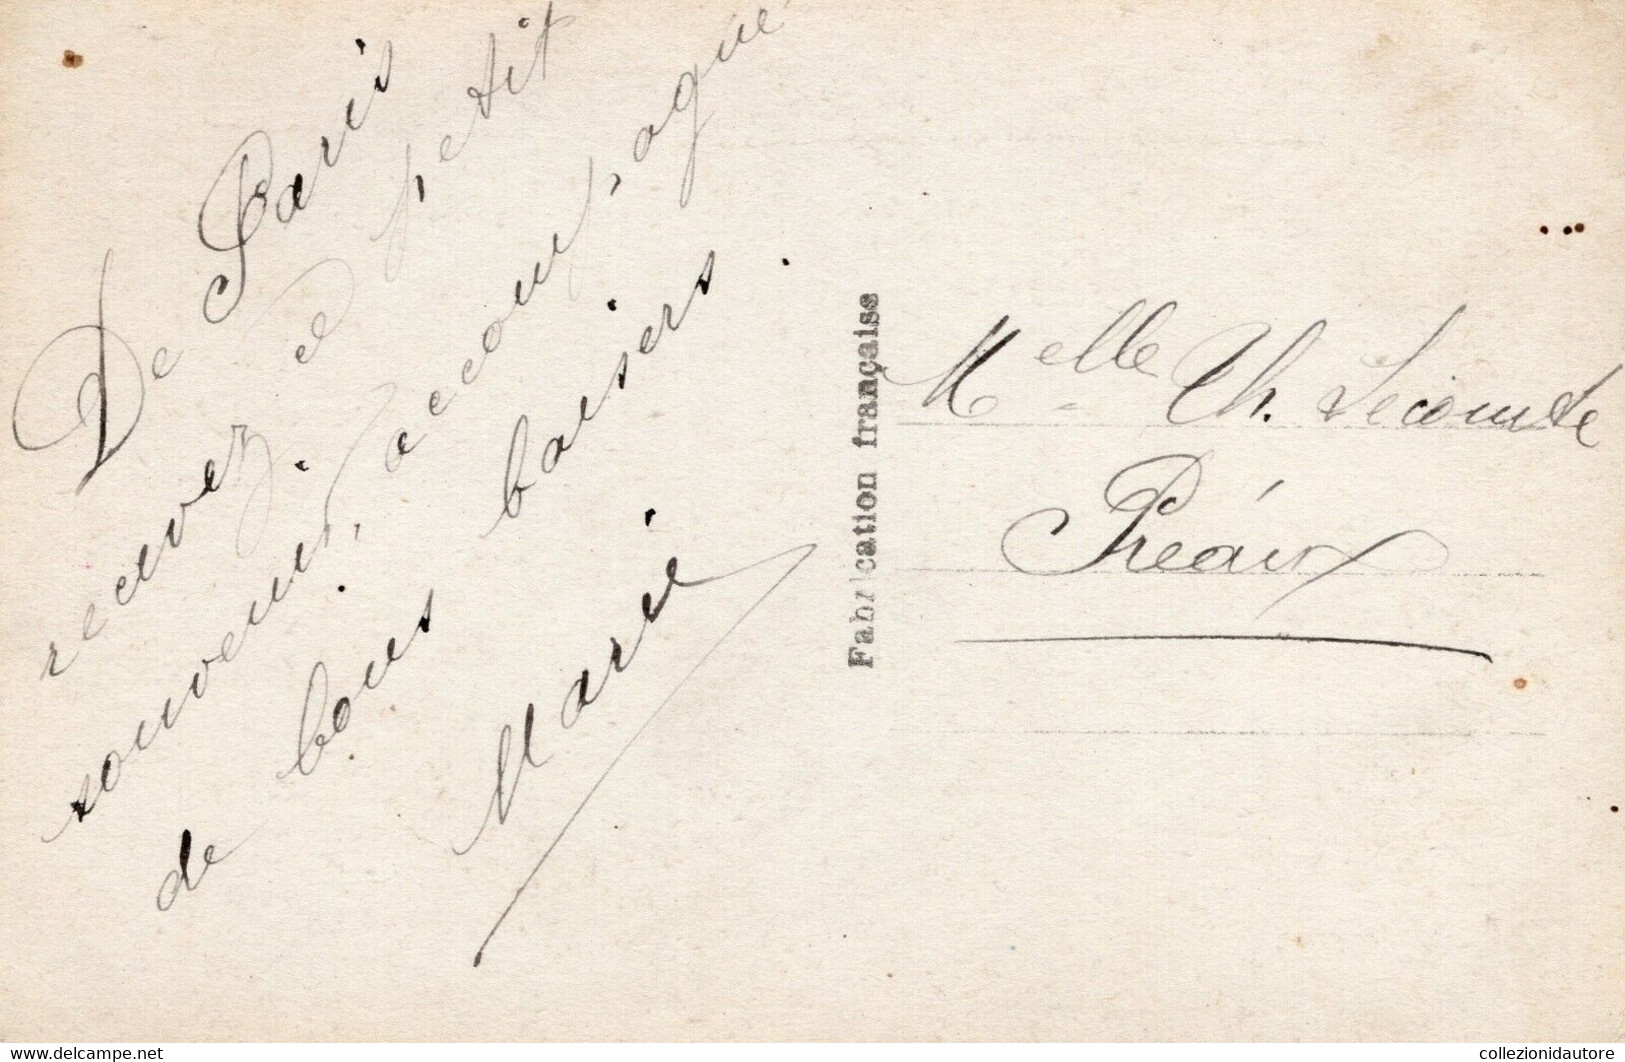 De Paris
recevez ce petit
souvenir, accompagné
de bons baisers.
Marie
Fabrication française
Melle Th. Lecomte
Préaux
delcampe.net
collezionidautore